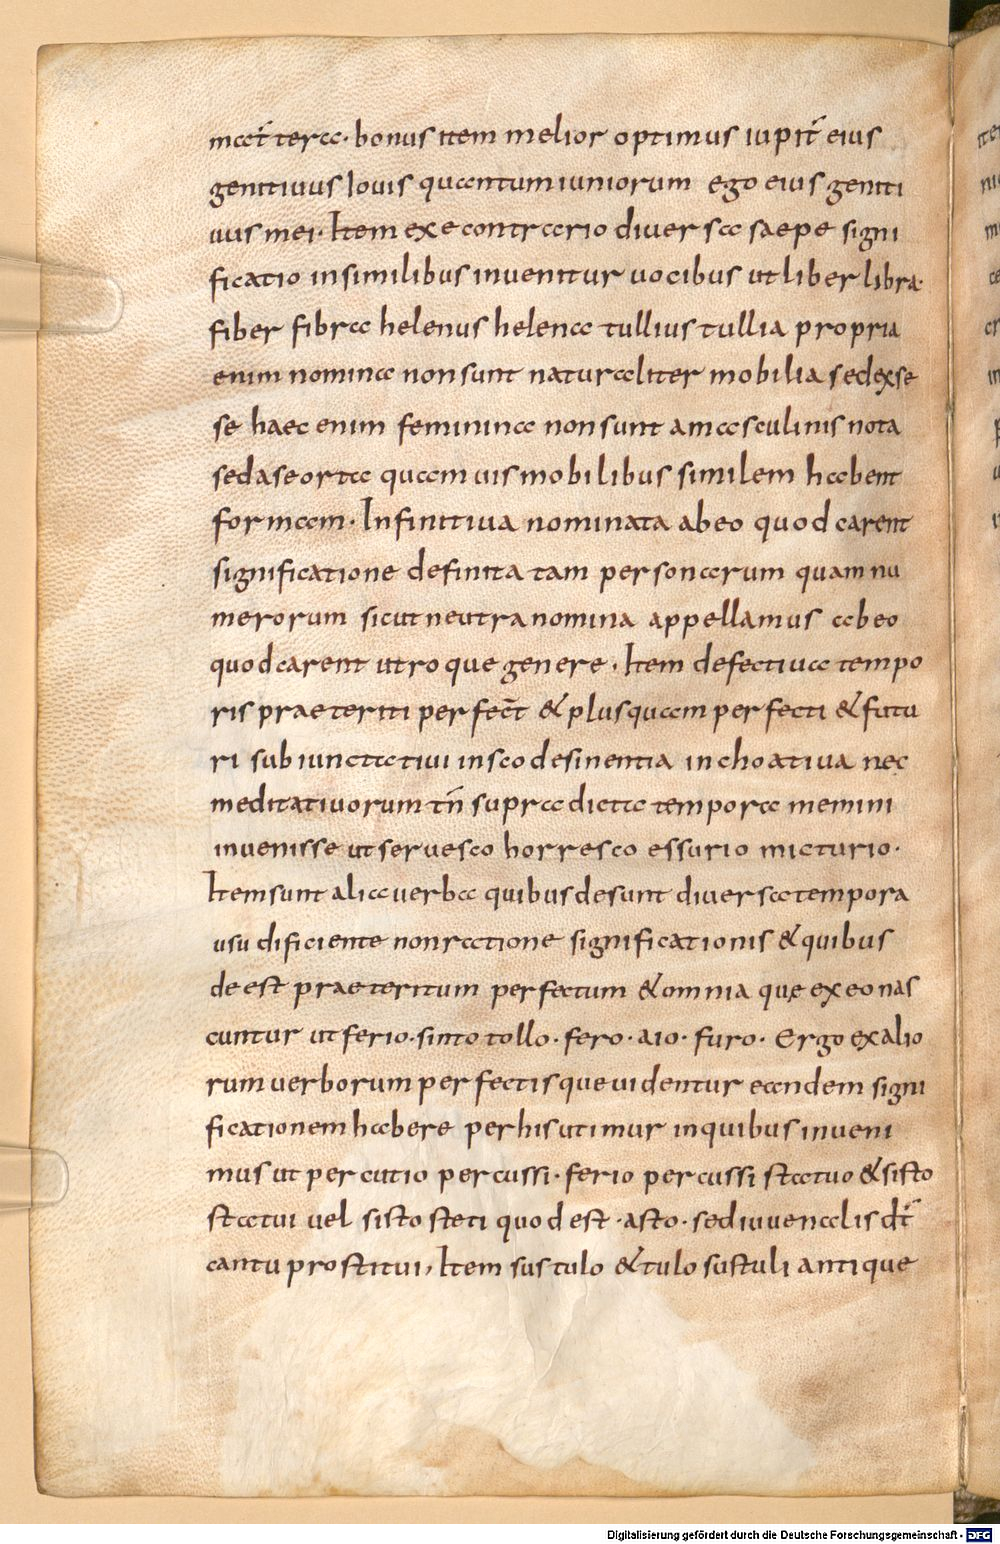 mat̄ tera· bonus item melior optimus iupit̄ eius
genitiuus Iouis quantum iuniorum ego eius geniti
uus mei· Item exe contrario diuersa saepe signi
ficatio in similibus inuenitur uocibus ut liber libra·
fiber fibra helenus helena tullius tullia propria
enim nomina non sunt naturaliter mobilia sed ex se
se haec enim feminina non sunt a masculinis nota
sed a se orta quam uis mobilibus similem habent
formam· Infinitiua nominata ab eo quod carent
significatione definita tam personarum quam nu
merorum sicut neutra nomina appellamus ab eo
quod carent utroque genere· Item defectiua tempo
ris praeteriti perfect̄ & plusquam perfecti & futu
ri subiunctatiui in sco desinentia inchoatiua nec
meditatiuorum tn̄ supra dicta tempora memini
inuenisse ut seruesco horresco essurio micturio·
Item sunt alia uerba quibus desunt diuersa tempora
usu dificiente non ractione significationis & quibus
deest praeteritum perfectum & omnia quę ex eo nas
cuntur ut ferio· sinto tollo· fero· aio· furo· Ergo ex alio
rum uerborum perfectis que uidentur eandem signi
ficationem habere per his utimur in quibus inueni
mus ut percutio percussi· ferio percussi statuo & sisto
statui uel sisto steti quod est ·asto· sed iuuenalis dt̄
cantu prostitui, Item sustulo & tulo sustuli antique
Digitalisierung gefördert durch die Deutsche Forschungsgemeinschaft - DFG